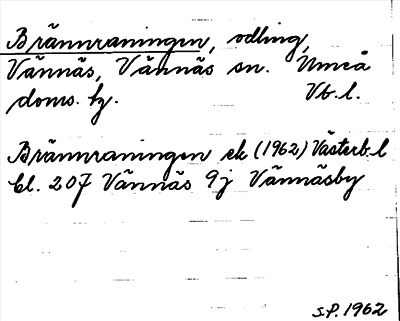 Brännraningen, odling,
Vännäs, Vännäs sn. Umeå
doms. hg. Vb. l.
Brännraningen ek (1962) Västerb. l
bl. 207 Vännäs 9j Vännäsby
S.P. 1962